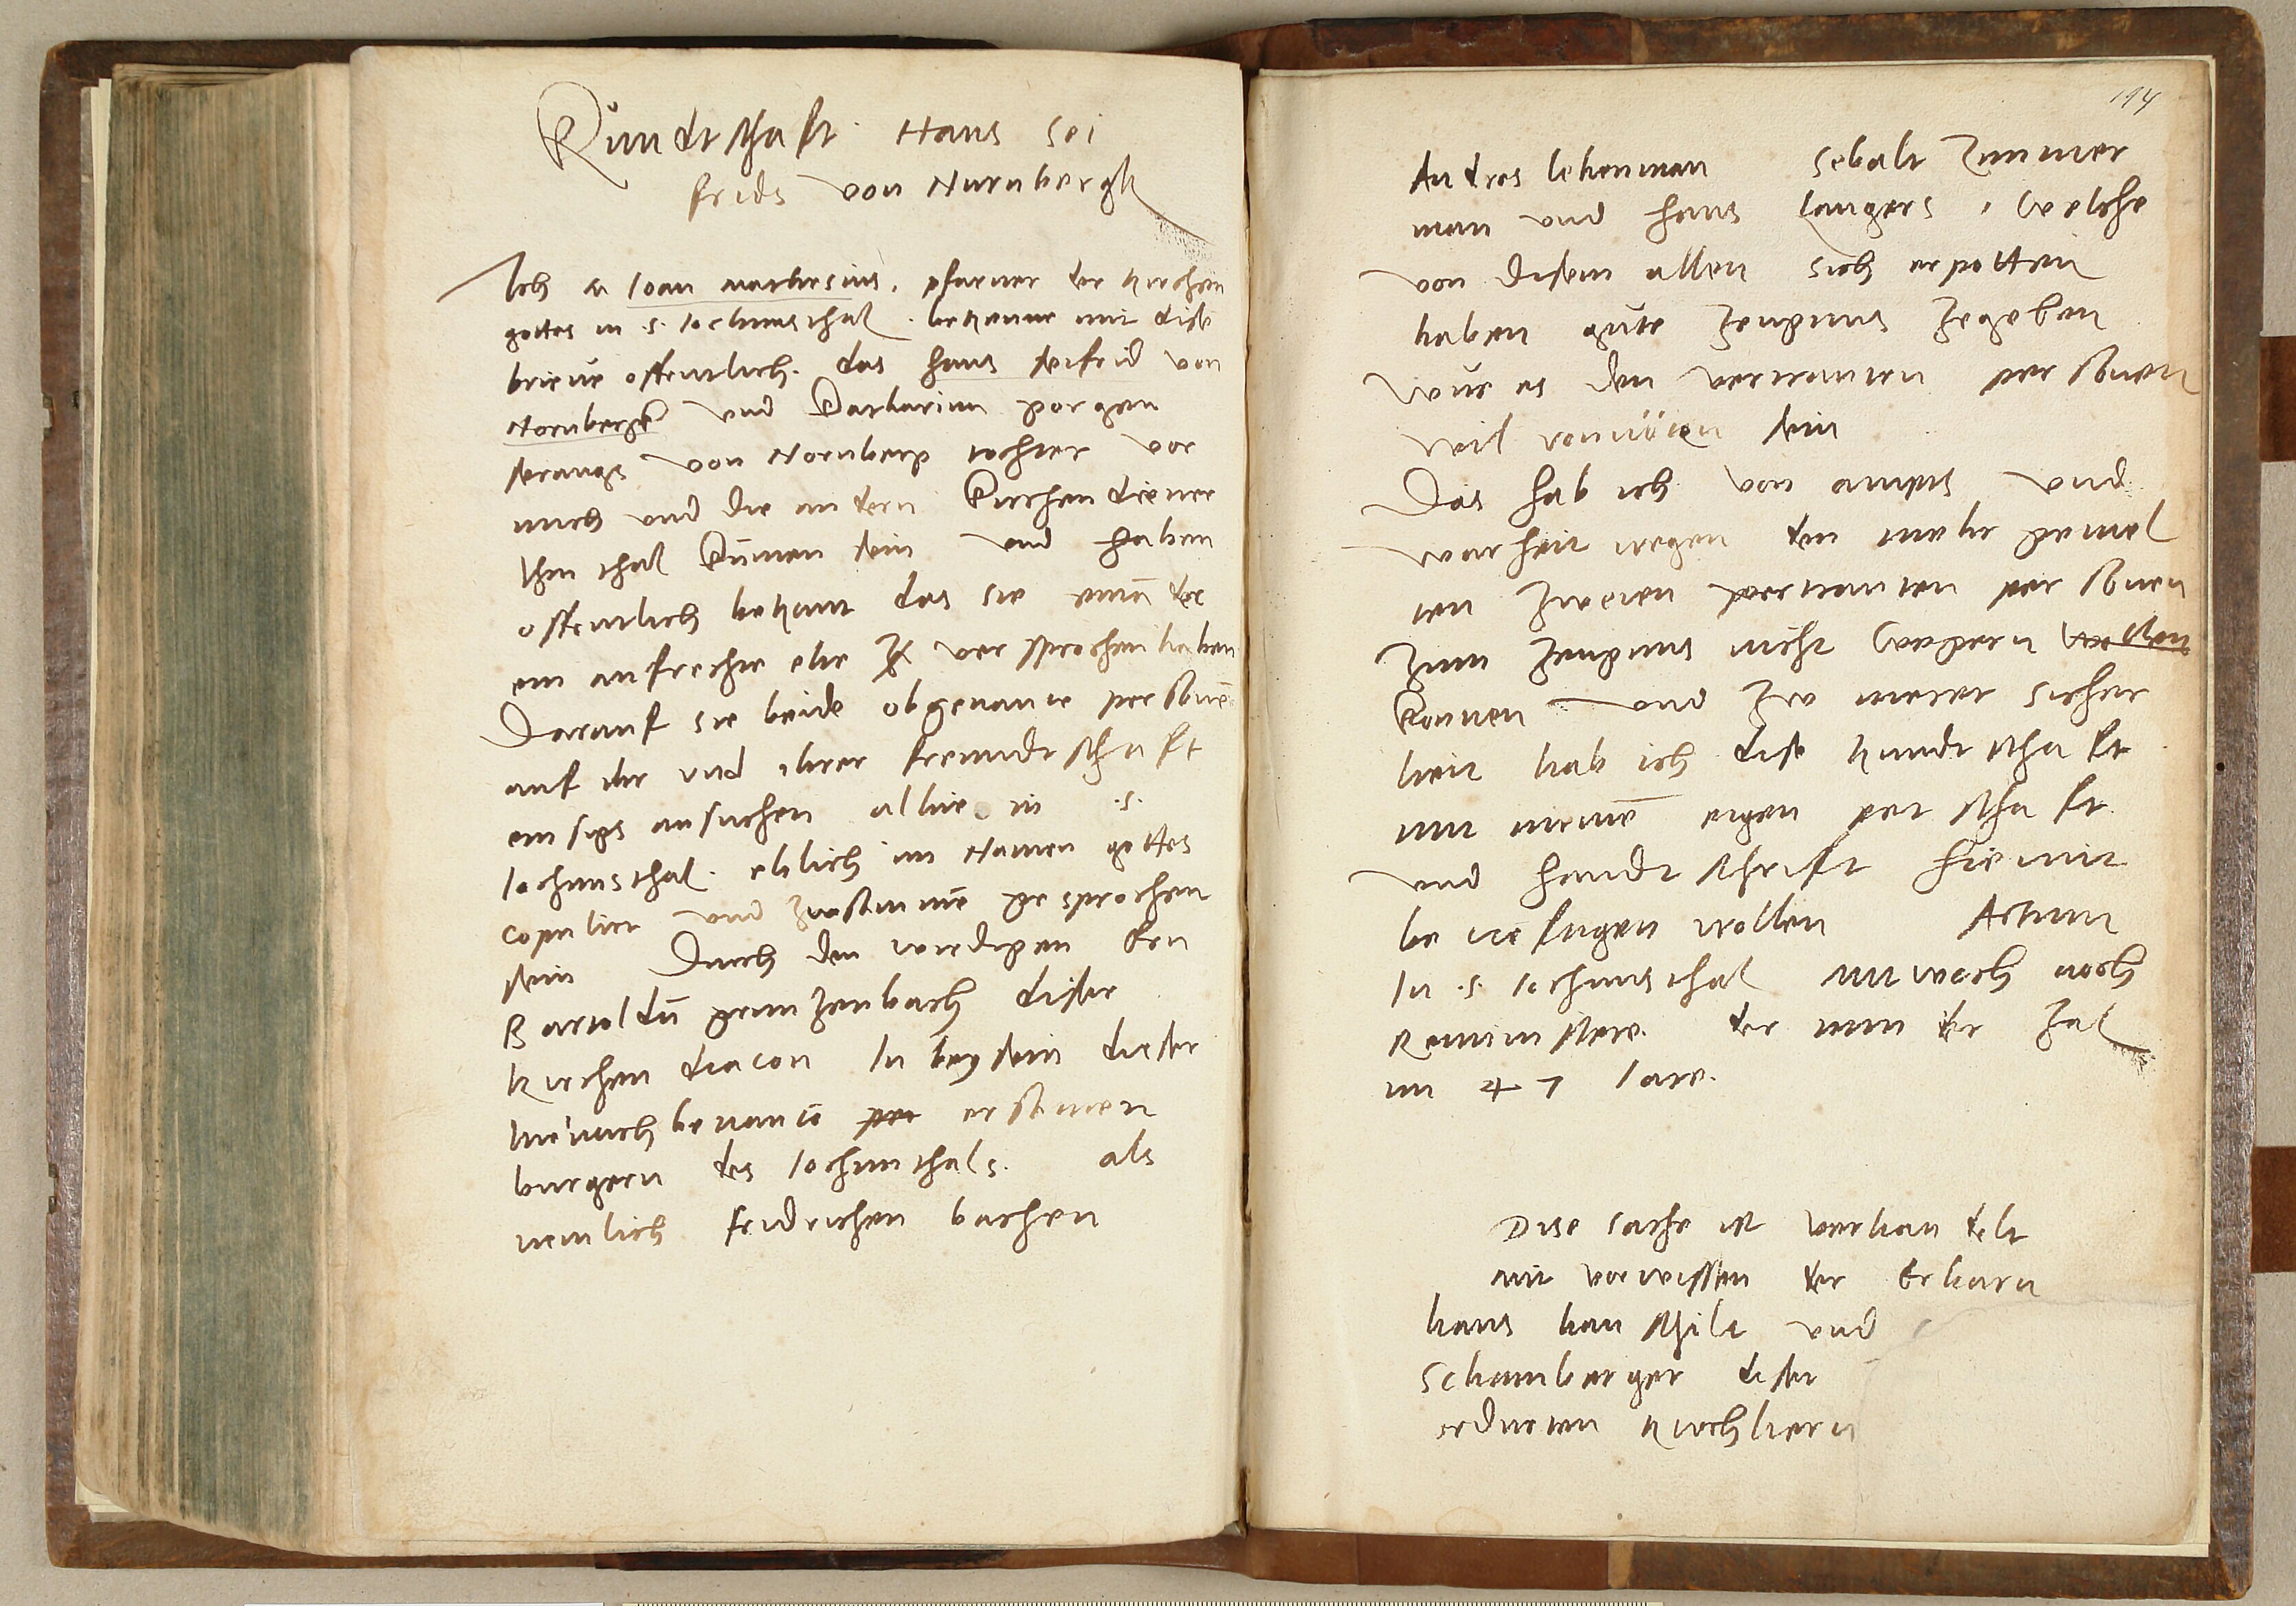 Kundtschaft Hans Sei
frids von Nurnbergk
Ich M Ioan Mathesius, pfarner der kirchen
gottes in .S. Iochimsthal. bekenne mit disē
brieue offentlich. das Hans Seifrid von
Nornbergk vnd Catharina Jorgen
von Nornberg tochter vor
mich vnd die andern Kirchendiener
Ihm thal kumen sein vnd haben
offentlich bekant das sie einādee
ein aufrechte ehe versprochen haben
Darauf sie beide obgenante personē
auf ihr vnd ihrer freundtschaft
emsigs ansuchen alhie in .S.
Iochimsthal. ehlich im Namen gottes
copulirt vnd zusammē gesprochen
sein Durch den wirdigen Ern
Bartoldū diser
kirchen diacon In beysein dieser
hienach benantē ersamen
burgern des Iochimthals. als
nemlich fridrichen bachen
194
Andres lehenman Sebalt Zimmer
man vnd Hans Langers, welche
von disem allen sich erpotten
haben gute zeugnus zegeben
wue es den vertrauten personen
wil vonnöten sein
Das hab ich von ampts vnd
warheit wegen den mehr gemel
ten zweien vertrauten personen
zum zeugnus nicht wegern wollen
konnen vnd zw merer sicher
heit hab ich dise kundtschaft
mit meinē eigen petschaft
vnd handtschrift hiemit
bevestigen wollen Actum
In .S. Iochimsthal Mitwoch noch
Reminiscere. der mindr zal
im 47 Iare.
Dise sache ist verhandelt
mit vorwissen der Erbarn
hans hauschilt vnd
Schamberger diser
ordneten kirchhern